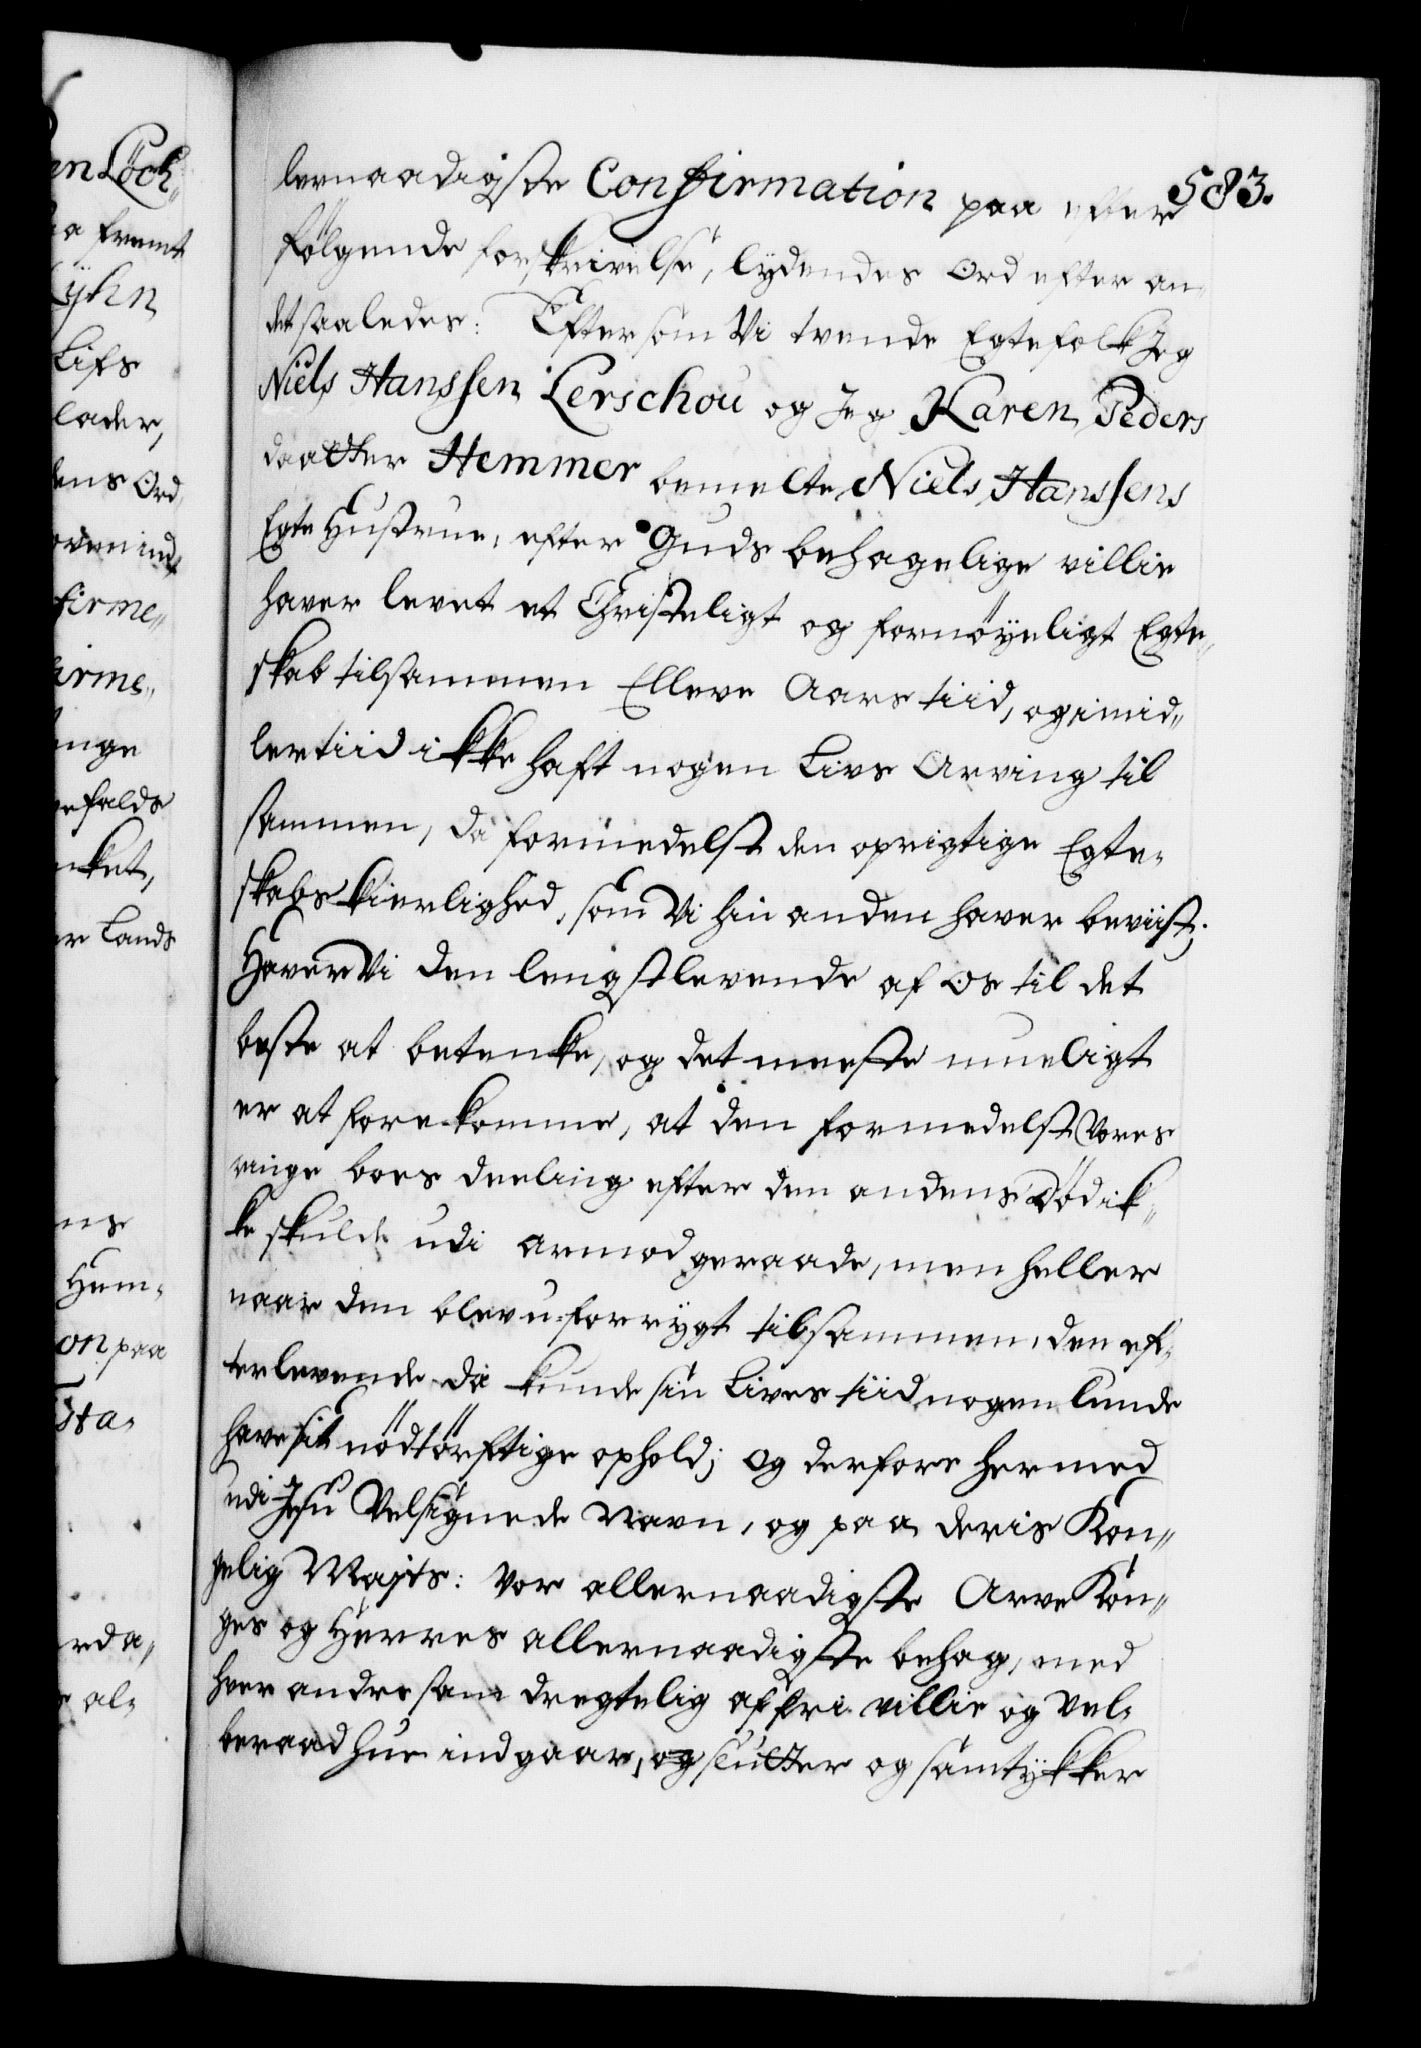 583.
lernaadigste Confirmation paa efter
følgende forskrivelse, lydendes Ord efter an-
det saaledes: Eftersom Vi tvende Egtefolk Jeg
Niels Hanssen Lerschou og Jeg Karen Peders
daatter Hemmer bemelte Niels Hanssens
Egte Hustrue, efter Guds behagelige villie
haver levet et Christeligt og fornøyeligt Egte-
skab tilsammen Elleve Aars tiid, og imid-
lertiid ikke haft nogen Livs Arving til
sammen, da formedelst den oprigtige Egte-
skabs Kierlighed, som Vi hin anden haver beviist;
Haver Vi den lengstlevende af os til det
beste at betenke, og det meeste mueligt
er at forekomme, at den formedelst Vores
ringe boes deeling efter den andens Død ik-
ke skulde udi armod geraade, men heller
naar den blev u-forrygt tilsammen, den ef-
terlevende da kunde sin Lives tiid nogenlunde
have sit nødtørftige ophold; og derfore hermed
udi Jesu Velsignede Navn, og paa deris Kon-
gelig Majts: vor allernaadigste Arve Kon-
ges og Herres allernaadigste behag, med
hver andre samdregtelig af fri villie og vel-
beraad hue indgaar, og slutter og samtykker
en Löch-
aa fremt
Lyhn
Lifs
lader,
dens Ord
oven ind
firme-
irme-
inge
efalds
nket,
er Lands
ens
Hem-
on paa
Sta-
rda-
e al-